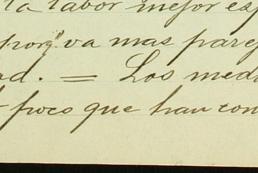 la labor mejor es
porq' va mas pare
d. = Los med
poco que han con